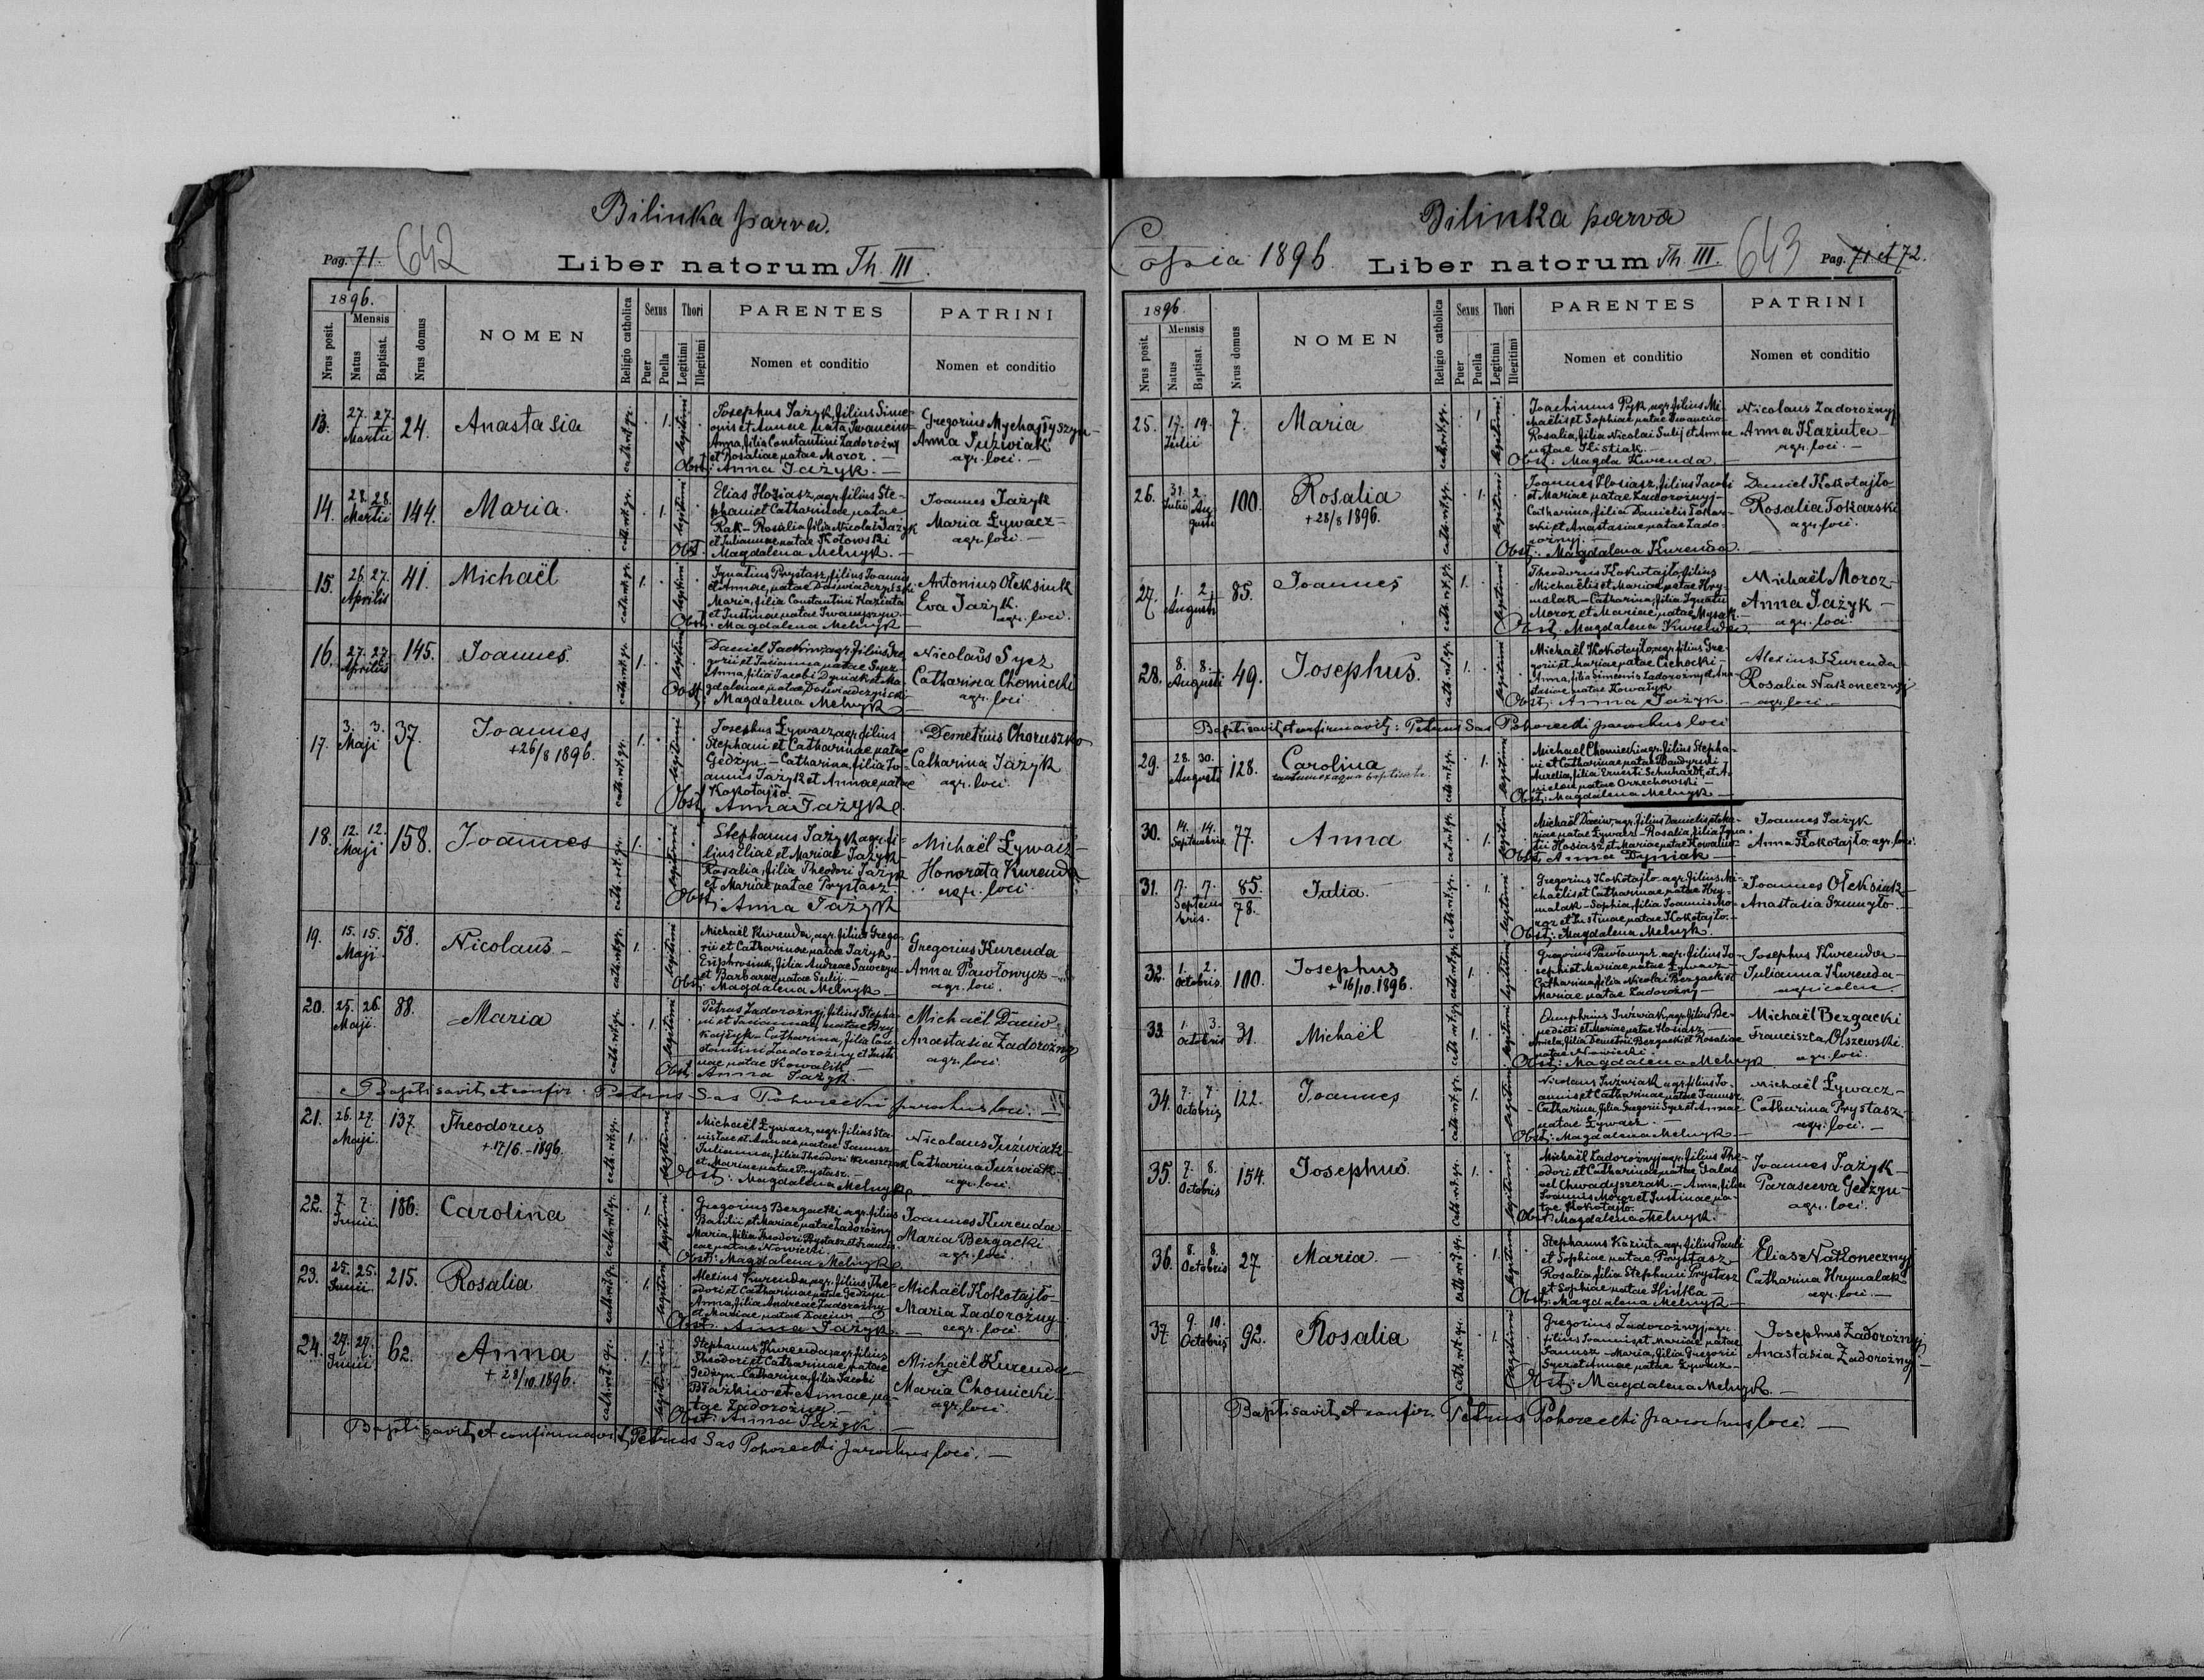 Bilinka parva.
Pag. 71. 642
Liber natorum Th. III.
1896.
Nrus posit.
Mensis
Natus
Baptisat.
Nrus domus
NOMEN
Religio catholica
Sexus
Puer
Puella
Thori
Legitimi
Illegitimi
PARENTES
Nomen et conditio
PATRINI
Nomen et conditio
13. 27. 27. Martii 24. Anastasia cath. rit. gr. 1. legitimi
Josephus Jażyk, filius Sime-
onis et Annae nata Iwanciw-
Anna, filia Constantini Zadorożny
et Rosaliae natae Moroz. —
Obst: Anna Jażyk. —
Gregorius Mychajłyszyn-
Anna Juźwiak
agr. loci. —
14. 28. 28. Martii 144. Maria. cath. rit. gr. 1. legitimi
Elias Hosiasz, agr. filius Ste-
phani et Catharinae natae
Rak - Rosalia filia Nicolai Jażyk
et Juliannae natae Kotowski
Obst: Magdalena Melnyk. —
Joannes Jażyk
Maria Ływacz-
agr. loci —
15. 26. 27. Aprilis 41. Michaël cath. rit. gr. 1. legitimi
Ignatius Prystasz, filius Joannis
et Annae, natae Doświadczyński
Maria, filia Constantini Kaziuta
et Justinae natae
Obst: Magdalena Melnyk —
Antonius Ołeksiuk
Eva Jażyk.
agr. loci.
16. 27. 27. Aprilis 145. Joannes. cath. rit. gr. 1. legitimi
Daniel agr. filius Gre-
gorii et Julianna natae Sycz
Anna, filia Jacobi Dyniak et Ma-
gdalenae natae
Obst: Magdalena Melnyk
Nicolaus Sycz
Catharina Chomicki
agr. loci
17. 3. 3. Maji 37. Joannes
+ 26/8 1896. cath. rit. gr. 1. legitimi
Josephus Ływacz, agr. filius
Stephani et Catharinae natae
Gedzyn. — Catharina, filia Jo-
annis Jażyk et Annae natae
Kokotajło.
Obst: Anna Jażyk.
Demetrius Choruszko
Catharina Jażyk
agr. loci.
18. 12. 12. Maji 158. Joannes cath. rit. gr. 1. legitimi
Stephanus Jażyk agr. fi-
lius Eliae et Mariae Jażyk
Rosalia, filia Theodori Jażyk
et Mariae natae Prystasz-
Obst: Anna Jażyk
Michaël Ływacz-
Honorata Kurenda
agr. loci
19. 15. 15. Maji 58. Nicolaus — cath. rit. gr. 1. legitimi
Michaël Kurenda, agr. filius Grego-
rii et Catharinae natae Jażyk-
Euphrosina, filia Andreae
et Barbarae natae Sulij-
Obst: Magdalena Melnyk —
Gregorius Kurenda
Anna Pawłowycz —
agr. loci.
20. 25. 26. Maji. 88. Maria cath. rit. gr. 1. legitimi
Petrus Zadorożnyj, filius Stepha-
ni et Juliannae, natae Hry-
- Catharina, filia Con-
stantini Zadorożny et Justi-
nae natae Kowalik —
Obst: Anna Jażyk.
Michaël Daciw
Anastasia Zadorożny
agr. loci.
Baptisavit et confir. Petrus Sas Pohorecki parochus loci. —
21. 26. 27. Maji. 137. Theodorus
+ 17/6. - 1896. cath. rit. gr. 1. legitimi
Michaël Ływacz, agr. filius Sta-
nislae et Annae natae Janusz-
Julianna, filia Theodori
et Mariae natae Prystasz.
Obst: Magdalena Melnyk
Nicolaus Juźwiak-
Catharina Juźwiak-
agr. loci.
22. 7. 7. Junii 186. Carolina cath. rit. gr. 1. legitimi
Gregorius Bezgacki agr. filius
Basilii et Mariae natae Zadorożny
Maria, filia Theodori Prystasz et Francis-
cae natae Nowicki.
Obst: Magdalena Melnyk
Joannes Kurenda
Maria Bezgacki
agr. loci.
23. 25. 25. Junii. 215. Rosalia cath. rit. gr. 1. legitimi
Alexius Kurenda, agr. filius The-
odori et Catharinae natae Gedzyn
Anna, filia Andreae Zadorożny
et Mariae natae Daciw.
Obst: Anna Jażyk.
Michaël Kokotajło-
Maria Zadorożny
agr. loci
24. 29. 29. Junii 62. Anna
+ 28/10. 1896. cath. rit. gr. 1. legitimi
Stephanus Kurenda agr. filius
Theodori et Catharinae, natae
Gedzyn - Catharina, filia Jacobi
Błażkiw et Annae na-
tae Zadorożny. —
Obst: Anna Jażyk. —
Michaël Kurenda
et
Maria Chomicki-
agr. loci.
Baptisavit et confirmavit Petrus Sas Pohorecki parochus loci. —
Bilinka parva
Copia 1896.
Liber natorum Th. III. 643 Pag. 71 et 72.
1896
Nrus posit.
Mensis
Natus
Baptisat.
Nrus domus
NOMEN
Religio catholica
Sexus
Puer
Puella
Thori
Legitimi
Illegitimi
PARENTES
Nomen et conditio
PATRINI
Nomen et conditio
25. 17. 19. Julii 7. Maria cath. rit. gr. 1 legitimi
Joachimus Pyk, agr. filius Mi-
chaëlis et Sophiae natae Iwanciw-
Rosalia, filia Nicolai Sulij et Annae
natae Histiak.
Obst: Magda Kurenda.
Nicolaus Zadorożnyj
Anna Kaziuta —
agr. loci —
26. 31. Julii 2. Augusti 100. Rosalia
+ 28/8 1896. cath. rit. gr. 1. legitimi
Joannes Hosiasz, filius Jacobi
et Mariae natae Zadorożnyj-
Catharina, filia Danielis Tokar-
ski et Anastasiae natae Zado-
rożnyj. —
Obst: Magdalena Kurenda.
Daniel Kokotajło
Rosalia Tokarski
agr. loci.
27. 1. 2. Augusti 85. Joannes cath. rit. gr. 1. legitimi
Theodorus Kokotajło, filius
Michaëlis et Mariae natae Hry-
malak - Catharina, filia Ignatii
Moroz et Mariae, natae Mysak.
Obst: Magdalena Kurenda
Michaël Moroz-
Anna Jażyk —
agr. loci
28. 8. 8. Augusti 49. Josephus. cath. rit. gr. 1. legitimi
Michaël Kokotajło, agr. filius Gre-
gorii et Mariae natae Cichocki -
Anna, filia Simeonis Zadorożny et Ana-
stasiae natae Kowałyk
Obst: Anna Jażyk.
Alexius Kurenda
Rosalia Nakonecznyj
- agr. loci. —
Baptisavit et confirmavit: Petrus Sas Pohorecki parochus loci
29. 28. 30. Augusti 128. Carolina
tantum ex aqua baptisata. cath. rit. gr. 1. legitimi
Michael Chomicki agr. filius Stepha-
ni et Catharinae natae
Aurelia, filia Ernesti Schuhardt, et A-
natae Orzechowski —
Obst: Magdalena Melnyk —
30. 14. 14. Septembris 77. Anna cath. rit. gr. 1. legitimi
Michaël Daciw, agr. filius Danielis et Ma-
riae natae Ływacz - Rosalia, filia Igna-
tii Hosiasz, et Mariae natae
Obst: Anna Dyniak —
Joannes Jażyk
Anna Kokotajło, agr. loci.
31. 17. 17. Septem-
bris. 85.
78. Julia. cath. rit. gr. 1. legitimi
Gregorius Kokotajło agr. filius Mi-
chaëlis et Catharinae natae Hry-
malak - Sophia, filia Joannis Mo-
roz et Justinae natae Kokotajło. —
Obst: Magdalena Melnyk.
Joannes Ołeksiuk —
Anastasia Szumyło. —
32. 1. 2. Octobris 100. Josephus
+ 16/10. 1896. cath. rit. gr. 1. legitimi
Gregorius Pawłowycz agr. filius Jo-
sephi et Mariae natae Ływacz-
Catharina, filia Nicolai Bezgacki et
Mariae natae Zadorożny —
Josephus Kurenda —
Julianna Kurenda —
agricolae.
33. 1. 3. Octobris 31. Michaël cath. rit. gr. 1. legitimi
Onuphrius Juźwiak, agr. filius Be-
nedicti et Mariae natae Hosiasz —
Amela, filia Demetrii Bergacki et Rosaliae
natae Nowicki.
Obst: Magdalena Melnyk
Michaël Bezgacki
Francisca Olszewski.
agr. loci.
34. 7. 7. Octobris 122. Joannes cath. rit. gr. 1. legitimi
Nicolaus Juźwiak agr. filius Jo-
annis et Catharinae natae Janusz
Catharina, filia Gregorii Sycz et Annae
natae Ływacz.
Obst: Magdalena Melnyk. —
Michaël Ływacz-
Catharina Prystasz
agr. loci. —
35. 7. 8. Octobris 154. Josephus. cath. rit. gr. 1. legitimi
Michaël Zadorożnyj agr. filius The-
odori et Catharinae natae Galas
vel Chwadyszczak. — Anna, filia
Joannis Moroz et Justinae na-
tae Kokotajło.
Obst: Magdalena Melnyk.
Joannes Jażyk —
Parasceva Gedzyn-
agr. loci.
36. 8. 8. Octobris 27 Maria. — cath. rit. gr. 1. legitimi
Stephanus Kaziuta agr. filius Pauli
et Sophiae natae Prystasz —
Rosalia, filia Stephani Prystasz
et Sophiae natae Hlinka —
Obst: Magdalena Melnyk —
Elias Nakonecznyj
Catharina Hrymalak
agr. loci. —
37. 9. 10. Octobris 92. Rosalia cath. rit. gr. 1. legitimi
Gregorius Zadorożnyj agr.
filius Joannis et Mariae natae
Janusz - Maria, filia Gregorii
Sycz et Annae natae Ływacz —
Obst: Magdalena Melnyk. —
Josephus Zadorożnyj
Anastasia Zadorożny. —
Baptisavit et confir. Petrus Pohorecki parochus loci. —